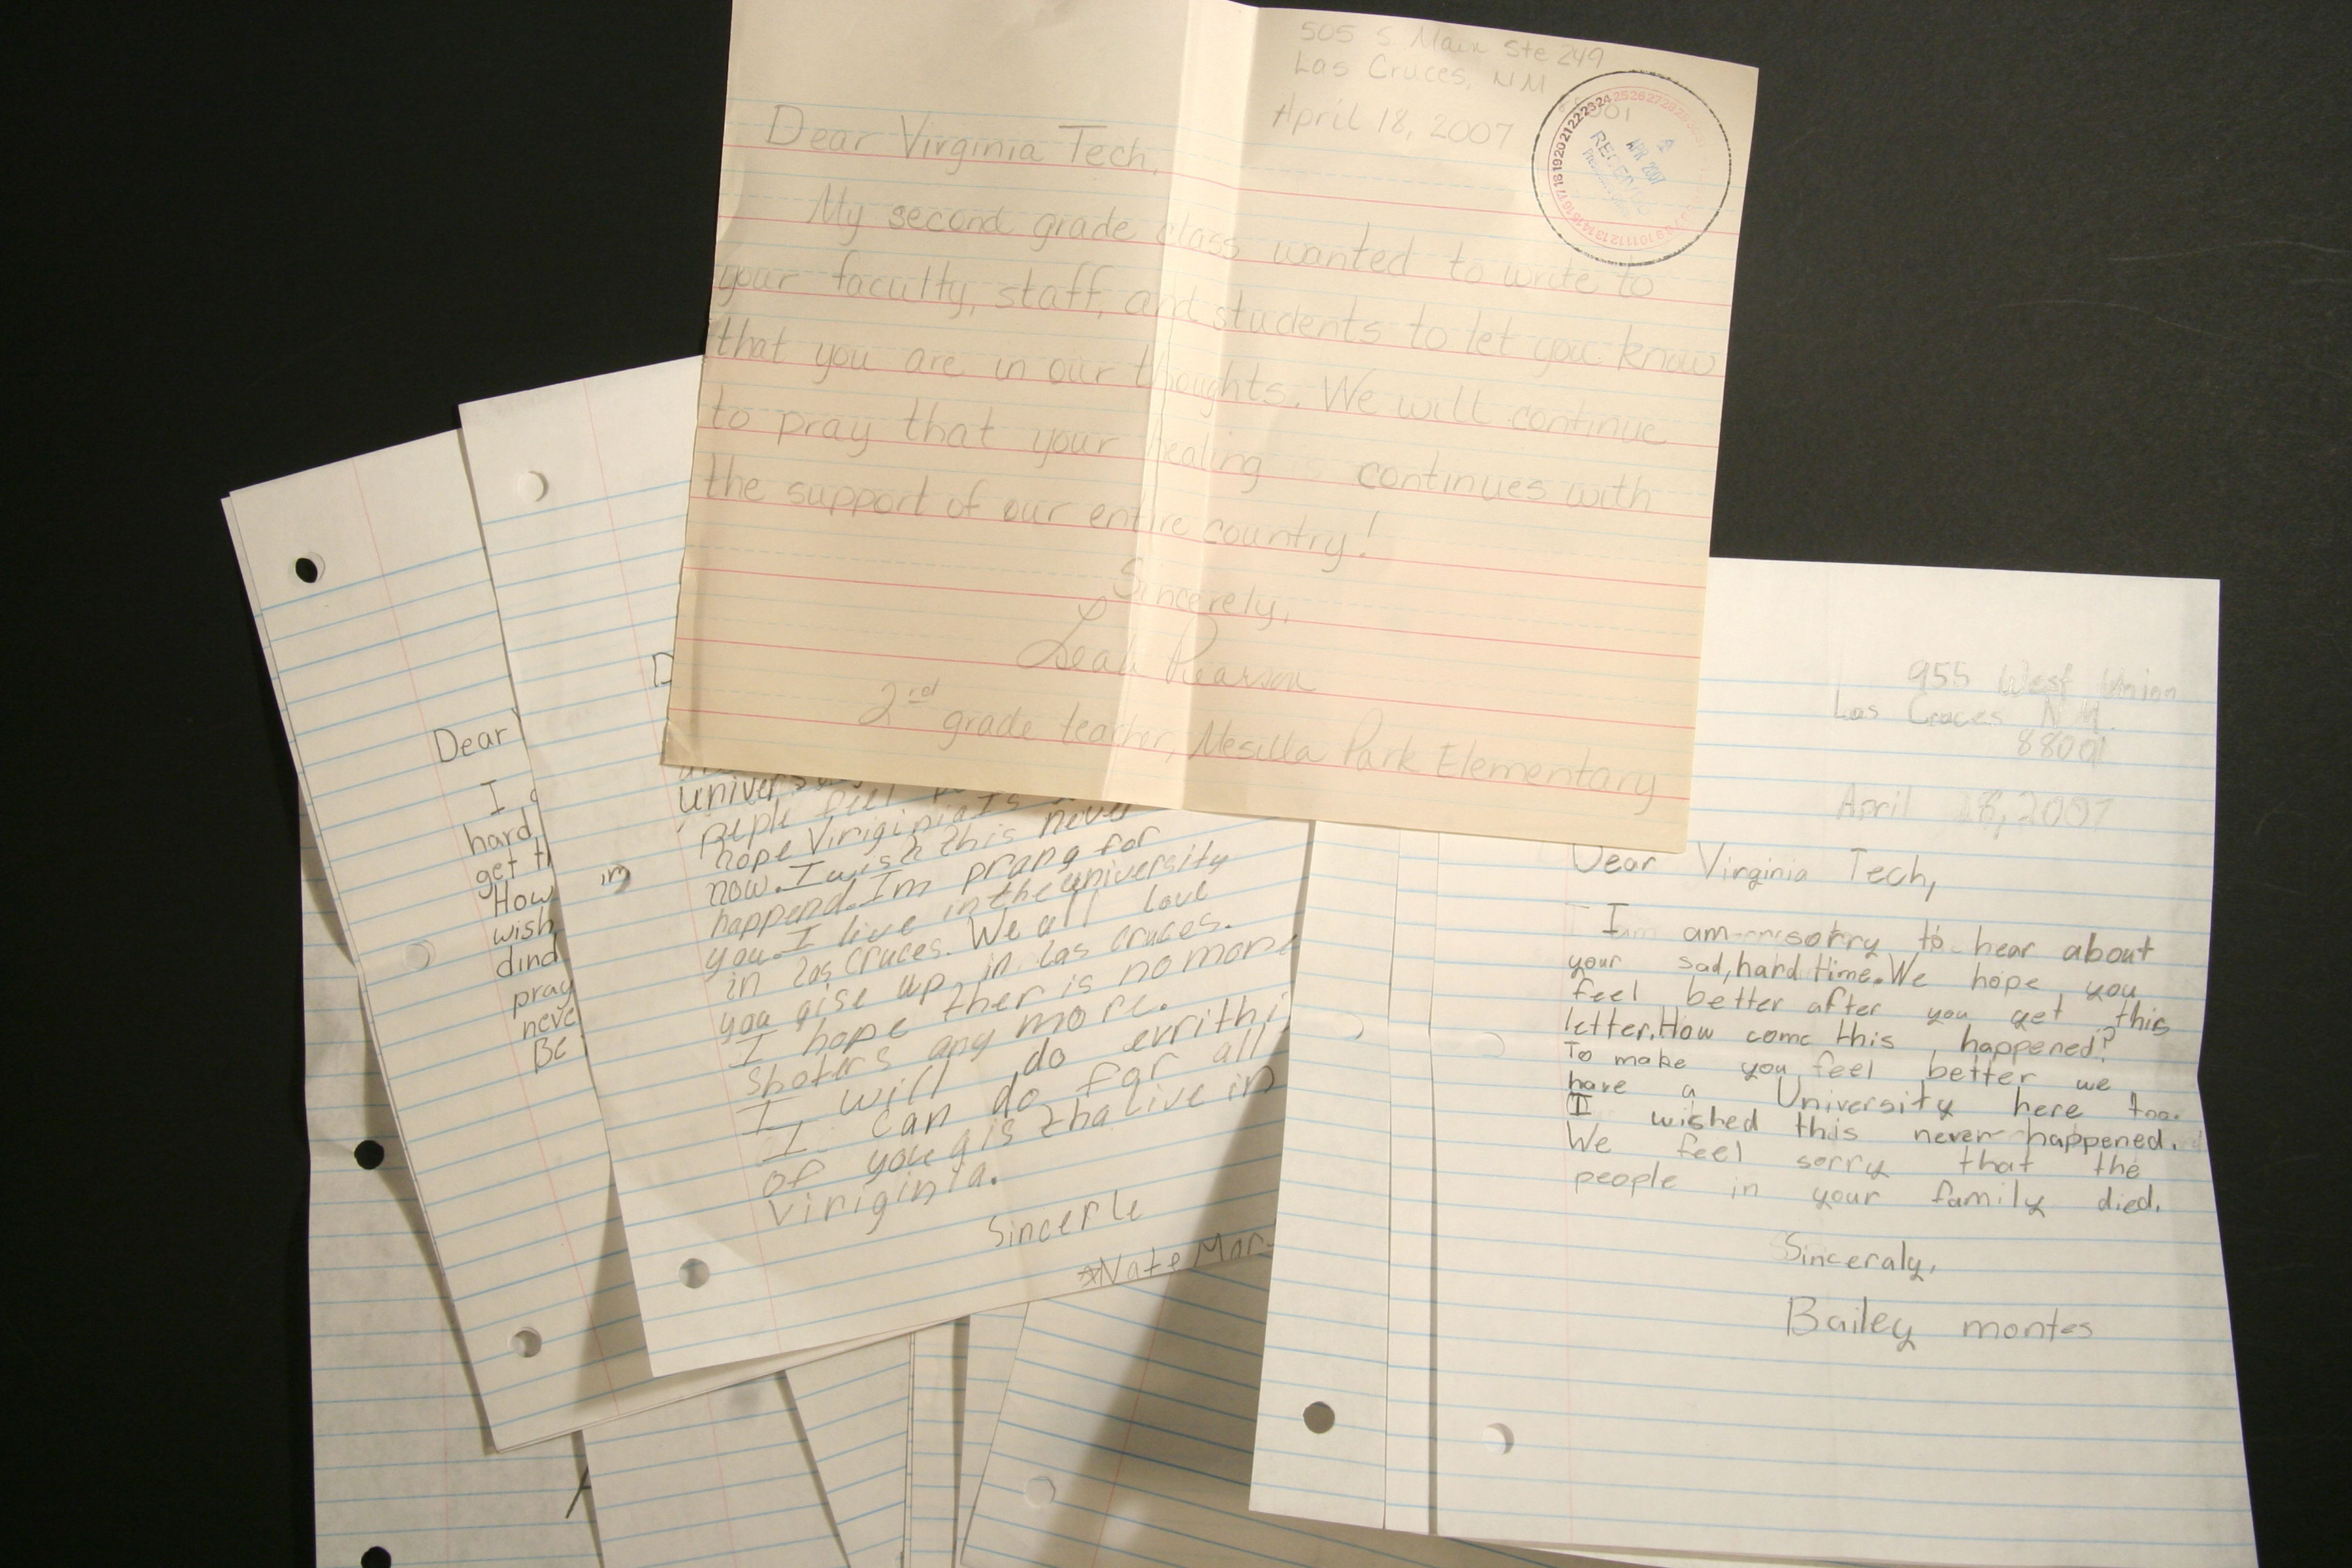 505 S Main Ste 249
Las Cruces, NM
April 18, 2007
Dear Virginia Tech,
My second grade class wanted to write to
your faculty, staff, and students to let you know
that you are in our thoughts. We will continue
to pray that your healing is continues with
the support of our entire country!
Sincerely,
Leah Pearson
2rd grade teacher, Mesilla Park Elementary
APR 2007
RECEIVED
Dear
I
hard,
get
How
wish
dind
pray
neve
Be
univers
peple feel
hope Viriginia Is
now. I wish this never
happend. Im prang for
you. I live in the university
in las cruces. We all love
you gise up in las cruces.
I hope ther is no more
shoters any more.
I will do evrithi
I can do for all
of you gis tha live in
Viriginia.
Sincerle
Nate Mar
955 West Union
Las Cruces NM.
88001
April 18, 2007
Dear Virginia Tech,
I am sorry to hear about
your sad, hard time. We hope you
feel better after you get this
letter. How come this happened?
To make you feel better we
have a University here too.
I wished this never happened.
We feel sorry that the
people in your family died.
Sinceraly,
Bailey montes